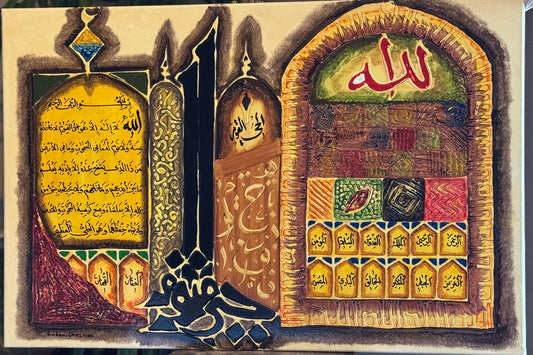 بسم الله الرحمن الرحيم
الله لا إله إلا هو الحي القيوم لا تأخذه
سنة ولا نوم له ما في السموات وما في الأرض
من ذا الذي يشفع عنده إلا بإذنه يعلم
ما بين أيديهم وما خلفهم ولا يحيطون بشيء من
علمه إلا بما شاء وسع كرسيه السموات والأرض
ولا يؤده حفظهما وهو العلي العظيم
الحي القيوم
الله
الرحمن الرحيم الملك القدوس السلام المؤمن
العزيز الجبار المتكبر الخالق البارئ المصور
الغفار القهار